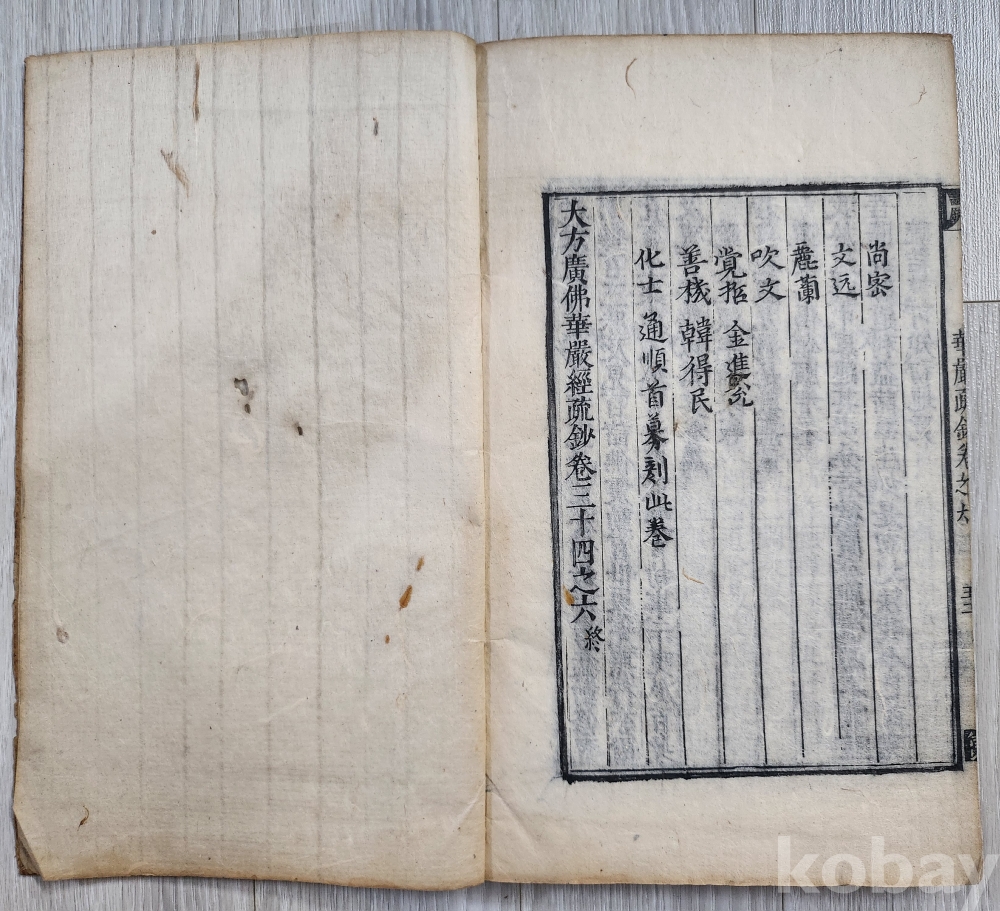 尚密
文远
麗蘭
吹文
覚拒 金進
善機 韓得民
化士 通順首募刻此卷
大方廣佛華嚴經疏鈔卷三十四之六 終
華嚴疏鈔卷之六
kobay